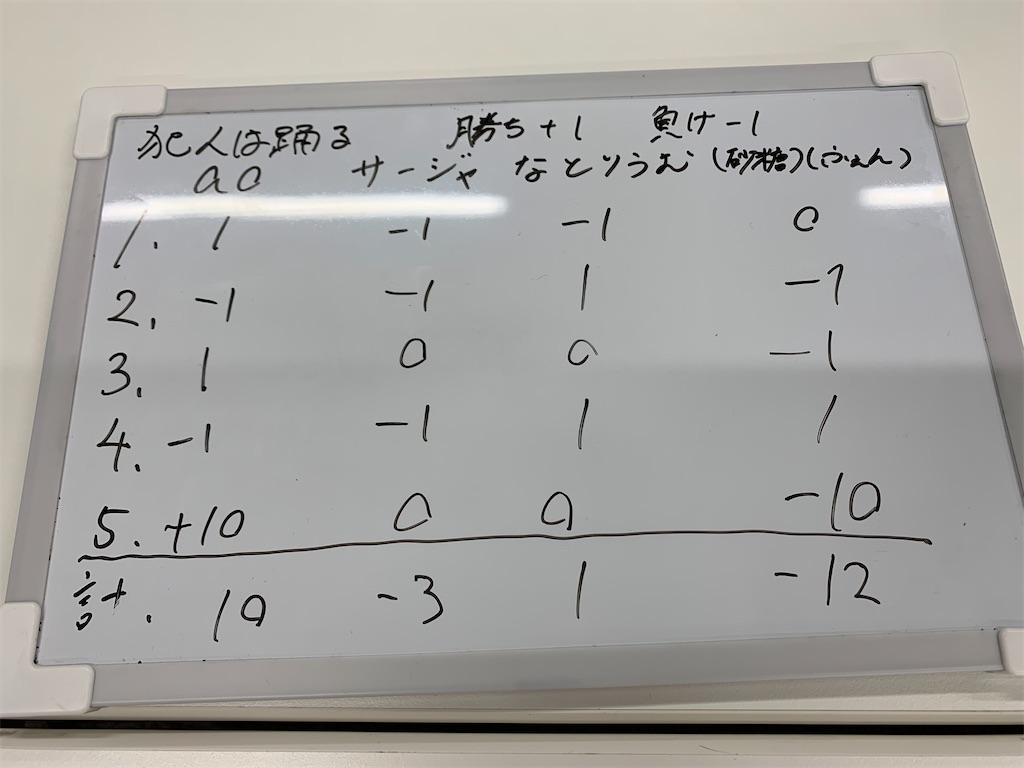 犯人は踊る 勝ち+1 負け-1
ao サージャ なとりうむ (砂糖)(ふぇん)
1. 1 -1 -1 0
2. -1 -1 1 -1
3. 1 0 0 -1
4. -1 -1 1 1
5. +10 0 0 -10
計. 10 -3 1 -12